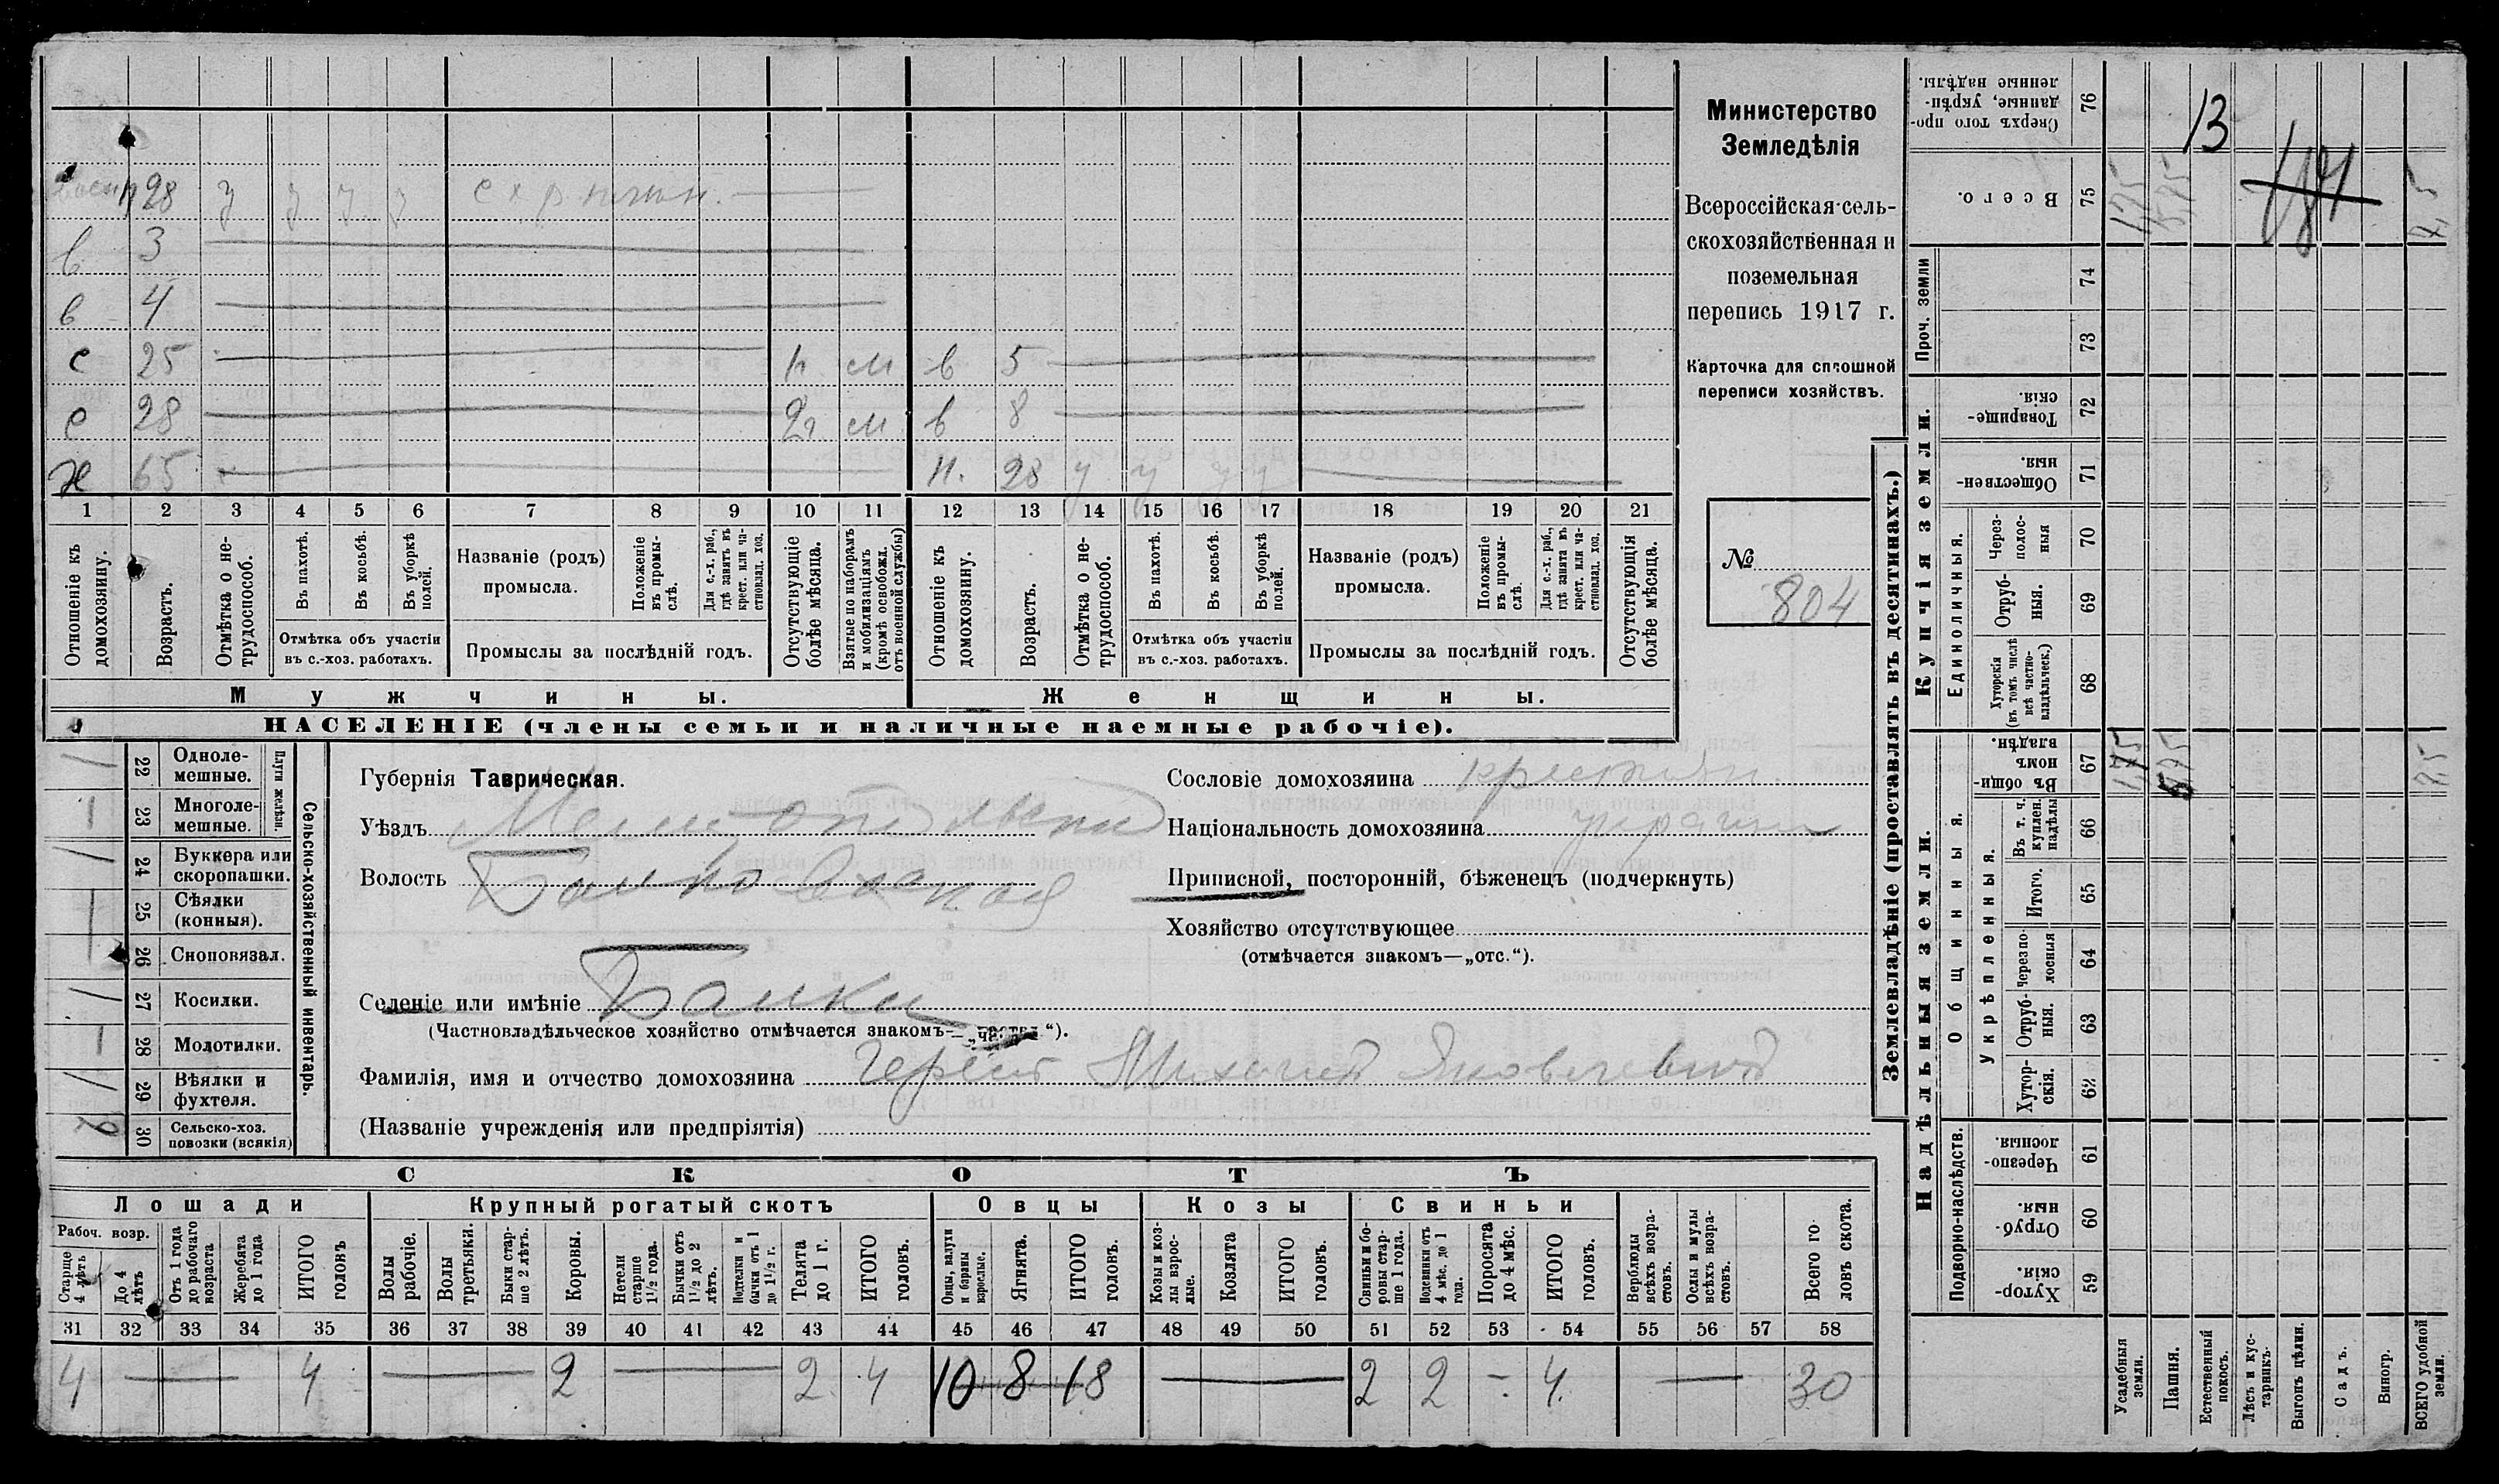 Министерство
Земледѣлія
Всероссійская сель-
скохозяйственная и
поземельная
перепись 1917 г.
Карточка для сплошной
переписи хозяйствъ.
№
804
28 у у у у
в 3
в 4
с 25 м в 5
с 28 м в 8
х 65 н. 28 у у у у
1 2 3 4 5 6 7 8 9 10 11 12 13 14 15 16 17 18 19 20 21
Отношеніе къ домохозяину.
Возрастъ.
Отмѣтка о не-трудоспособ.
Въ пахотѣ.
Въ косьбѣ.
Въ уборкѣ полей.
Отмѣтка объ участіи
въ с.-хоз. работахъ.
Названіе (родъ)
промысла.
Положеніе въ промы-слѣ.
Для с.-х. раб., гдѣ занятъ въ крест. или ча-стновлад. хоз.
Промыслы за послѣдній годъ.
Отсутствующіе болѣе мѣсяца.
Взятые по наборамъ и мобилизаціямъ (кромѣ освобожд. отъ военной службы)
Отношеніе къ домохозяину.
Возрастъ.
Отмѣтка о не-трудоспособ.
Въ пахотѣ.
Въ косьбѣ.
Въ уборкѣ полей.
Отмѣтка объ участіи
въ с.-хоз. работахъ.
Названіе (родъ)
промысла.
Положеніе въ промы-слѣ.
Для с.-х. раб., гдѣ занята въ крест. или ча-стновлад. хоз.
Промыслы за послѣдній годъ.
Отсутствующія болѣе мѣсяца.
Мужчины.
Женщины.
НАСЕЛЕНІЕ (члены семьи и наличные наемные рабочіе).
Сельско-хозяйственный инвентарь.
Плуги желѣзн.
22 Одноле-мешные.
23 Многоле-мешные.
24 Буккера или скоропашки.
25 Сѣялки (конныя).
26 Сноповязал.
27 Косилки.
28 Молотилки.
29 Вѣялки и фухтеля.
30 Сельско-хоз. повозки (всякія)
Губернія Таврическая.
Уѣздъ Мелитопольскій
Волость Балковская
Селеніе или имѣніе Балки
(Частновладѣльческое хозяйство отмѣчается знакомъ—„частвл.“).
Фамилія, имя и отчество домохозяина Михаилъ Яковлевичъ
(Названіе учрежденія или предпріятія)
Сословіе домохозяина крестьян.
Національность домохозяина украин.
Приписной, посторонній, бѣженецъ (подчеркнуть)
Хозяйство отсутствующее
(отмѣчается знакомъ—„отс.“).
СКОТЪ
Лошади
Крупный рогатый скотъ
Овцы
Козы
Свиньи
Рабоч. возр.
Старше 4 лѣтъ
До 4 лѣтъ
Отъ 1 года до рабочаго возраста
Жеребята до 1 года
ИТОГО головъ
Волы рабочіе.
Волы третьяки.
Быки стар-ше 2 лѣтъ.
Коровы.
Нетели старше 1½ года.
Бычки отъ 1½ до 2 лѣтъ.
Подтелки и бычки отъ 1 до 1½ г.
Телята до 1 г.
ИТОГО головъ.
Овцы, валухи и бараны взрослые.
Ягнята.
ИТОГО головъ.
Козы и коз-лы взрос-лые.
Козлята
ИТОГО головъ.
Свиньи и бо-ровы стар-ше 1 года.
Подсвинки отъ 4 мѣс. до 1 года.
Поросята до 4 мѣс.
ИТОГО головъ.
Верблюды всѣхъ возра-стовъ.
Ослы и мулы всѣхъ возра-стовъ.
Всего го-ловъ скота.
31 32 33 34 35 36 37 38 39 40 41 42 43 44 45 46 47 48 49 50 51 52 53 54 55 56 57 58
4 4 2 2 4 10 8 18 2 2 - 4 30
Землевладѣніе (проставлять въ десятинахъ.)
Надѣльныя земли.
Купчія земли.
Проч. земли
Подворно-наслѣдств.
Общинныя.
Укрѣпленныя.
Единоличныя.
Сверхъ того про-данные, укрѣп-ленные надѣлы. 76
Всего. 75
74
73
Товарище-скія. 72
Обществен-ныя. 71
Через-полос-ныя 70
Отруб-ныя. 69
Хуторскія (въ томъ числѣ всѣ частно-владѣльческ.) 68
Въ общи-номъ владѣн. 67
Въ т. ч. куплен. надѣлы 66
Итого. 65
Черезпо-лосныя 64
Отруб-ныя. 63
Хутор-скія. 62
Черезпо-лосныя. 61
Отруб-ныя. 60
Хутор-скія. 59
Усадебныя земли.
Пашня.
Естественный покосъ.
Лѣсъ и кус-тарникъ.
Выгонъ цѣлин.
Садъ.
Виногр.
ВСЕГО удобной земли.
13
1,75
5,75
7,5
1,75
5,75
7,5